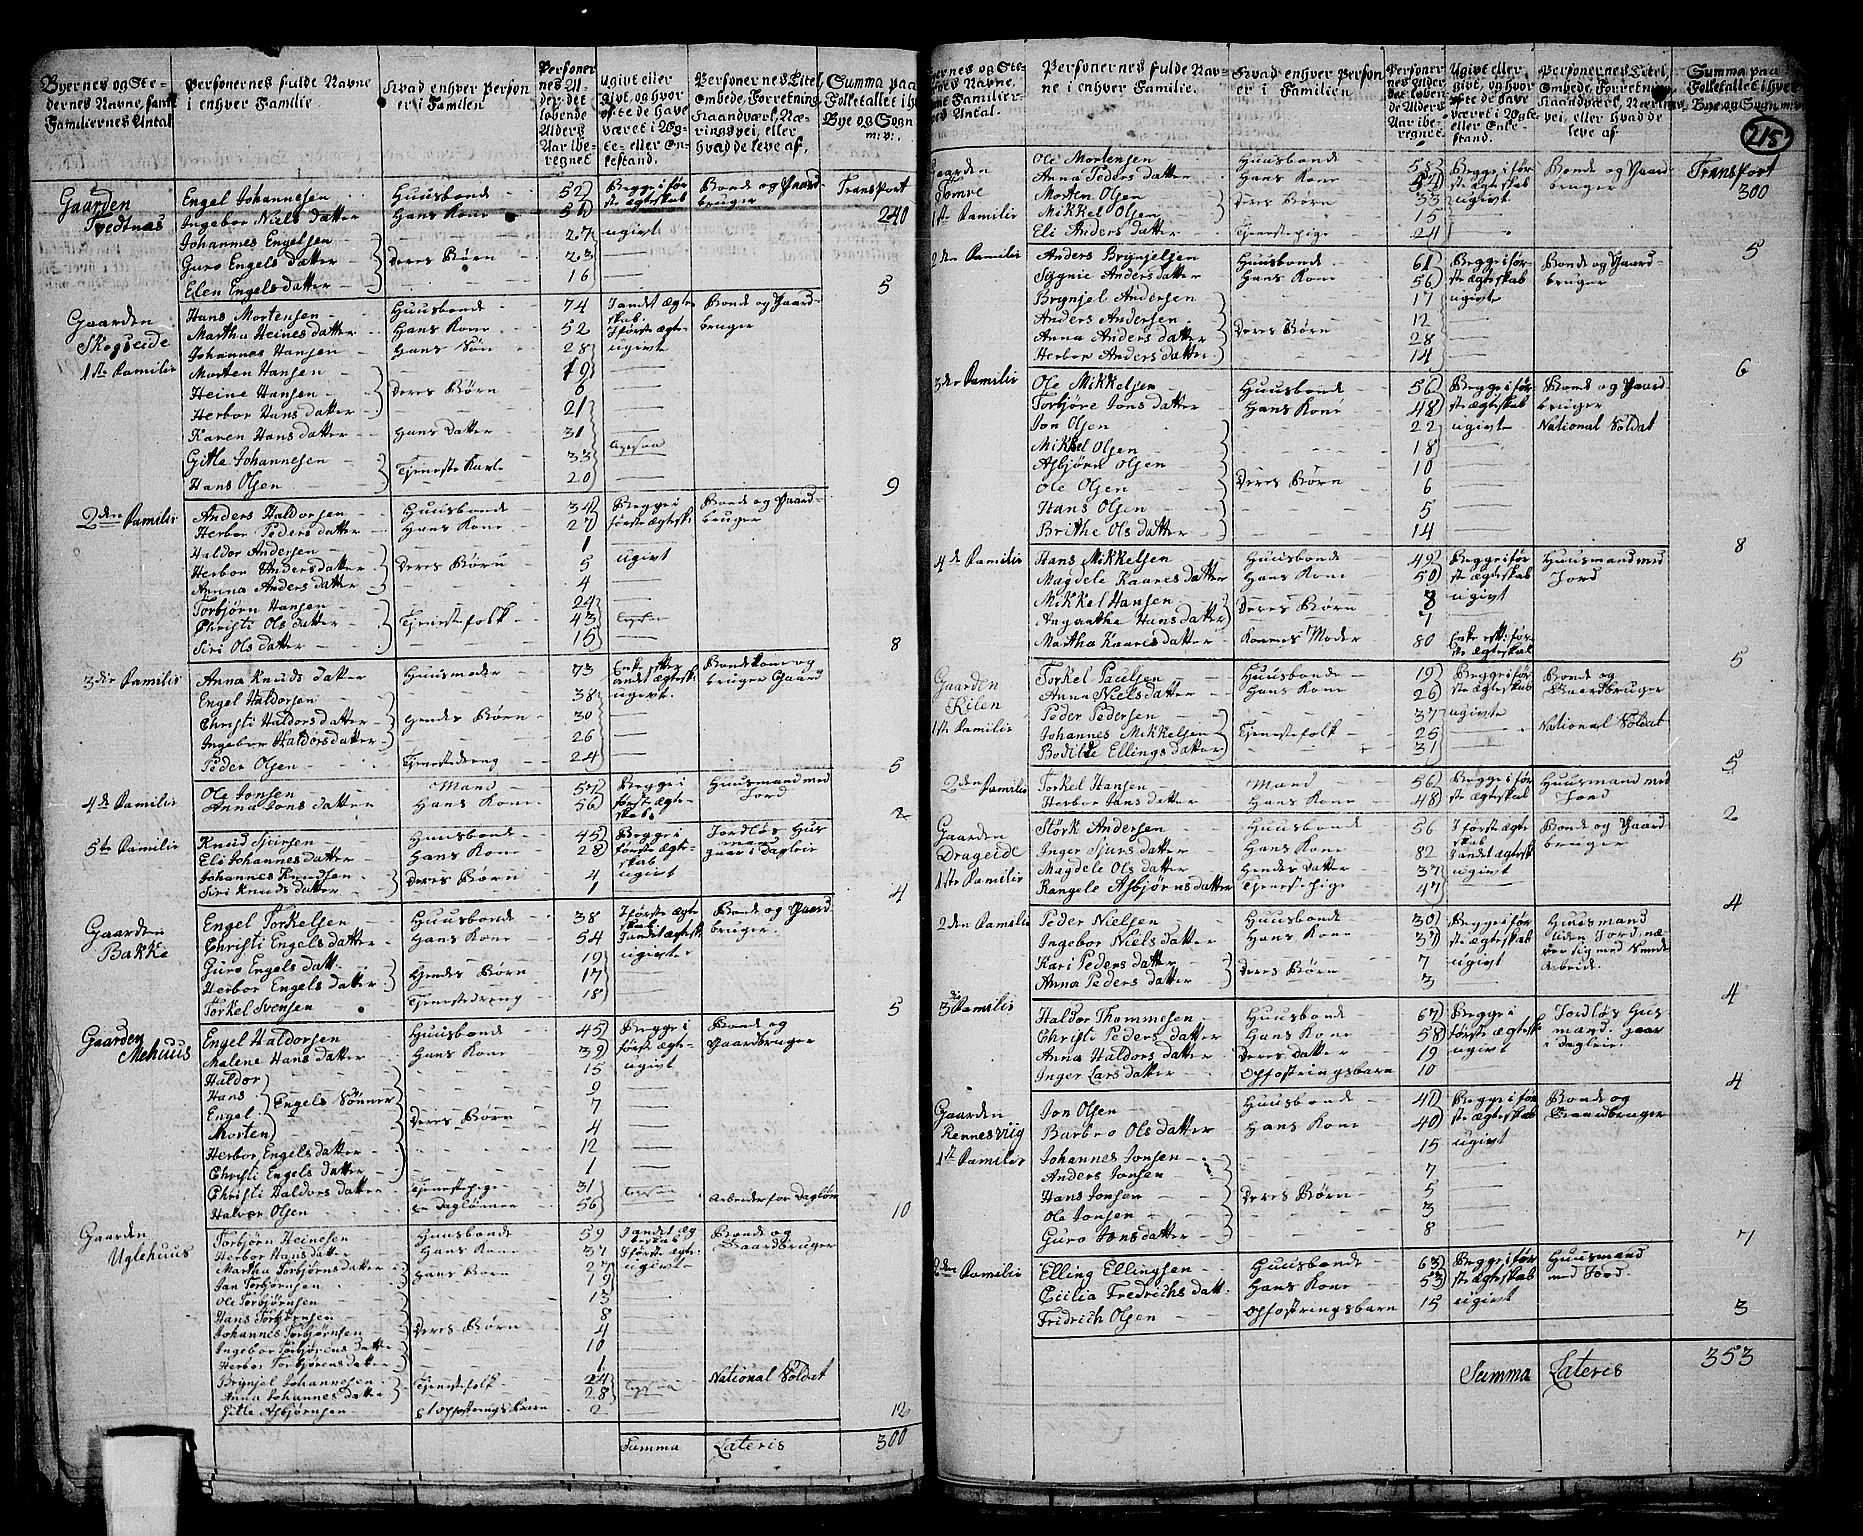 Byernes og Stedernes Navne, samt Familiernes Antal
Personernes fulde Navne i enhver Familie
Hvad enhver Person er i Familien
Personernes Alder det løbende Alders Aar iberegnet
Ugivt eller givt, og hvor ofte de have været i Ægte- eller Enkestand.
Personernes Titel, Embede, Forretning, Haandværk, Næringsvei, eller hvad de leve af.
Summa paa Folketallet i hver Bye og Sogn m: v:
Gaarden Tvedtnæs
Engel Johannesen Huusbonde 52 Begge i første ægteskab Bonde og Gaardbruger Transport 240
Ingebor Niels datter Hans Kone
Johannes Engelsen 27 ugivt
Guro Engels datter Deres Børn 23
Elen Engelsdatter 16
5
Gaarden Skogseide
1ste Familie
Hans Mortensen Huusbonde 74 I andet ægteskab Bonde og Gaardbruger
Martha Heines datter Hans Kone 52 I første ægte-
Johannes Hansen Hans Søn 28 ugivt
Morten Hansen 19
Heine Hansen Deres Børn 6
Herbor Hans datter 21
Karen Hans datter Hans datter 31
Gitle Johannesen 33 ligesaa
Hans Olsen Tjenestekarle 20
9
2den Familie
Anders Haldorsen Huusbonde 34 Begge i første ægtesk: Bonde og Gaardbruger
Herbor Peders datter Hans Kone 27
Haldor Andersen 1
Herbor Andersdatter Deres Børn 5 ugivt
Anna Anders datter 4
Torbjørn Hansen 24
Christi Ols datter Tjenestefolk 43 ligesaa
Siri Ols datter 15
8
3die Familie
Anna Knuds datter Huusmoder 73 Enke efter andet ægtesk: Bondekone og bruger Gaard
Engel Haldorsen 38 ugivt.
Christi Haldorsdatter Hendes Børn 30
Ingebor Haldorsdatter 26
Peder Olsen Tjenestedreng 24
5
4de Familie
Ole Jonsen Mand 57 Begge i første ægteskab Huusmand med Jord
Anna Jons datter Hans Kone 56
2
5te Familie
Knud Sjursen Huusbonde 45 Begge i første ægteskab Jordløs Husmand gaar i Dagleie
Eli Johannes datter Hans Kone 28
Johannes Knudsen Deres Børn 4 ugivt
Siri Knuds datter 1
4
Gaarden Bakke
Engel Torkelsen Huusbonde 38 I første ægteskab Bonde og Gaardbruger.
Christi Engels datter Hans Kone 54 I andet ægtesk:
Guro Engels datt. 19 ugivter
Herbor Engels datter Hendes Børn 17
Torkel Svensen Tjenestedreng 18
5
Gaarden Mehuus
Engel Haldorsen Huusbonde 45 Begge i første ægte- Bonde og Gaardbruger
Malene Hans datter Hans Kone 39
Haldor 15 ugivt
Hans Engels Sønner 9
Engel 7
Morten Deres Børn 4
Herbor Engels datter 12
Christi Engels datter 1
Christi Haldors datter Tjenestepige 31 ligesaa
Halvor Olsen en Daglønner 56 Arbeider for Dagløn
10
Gaarden Uglehuus
Torbjørn Heinesen Huusbonde 59 I andet ægteskab Bonde og Gaardbruger
Herbor Hans datter Hans Kone 37 I første ægte-
Martha Torbjørns datter Hans Børn 27 ugivt
Jan Torbjørnsen 19
Ole Torbjørnsen 13
Hans Torbjørnsen 8
Johannes Torbjørnsen Deres Børn 4
Ingebor Torbjørens Datter 10
Herbor Torbjørensdatter 1
Brynjel Johannesen 24 National Soldat
Anna Johannes datter Tjenestefolk 28 ligesaa
Gitle Asbjørnsen et Opfostringsbarn 2
12
Summa Lateris 300
Byernes og Stedernes Navne, samt Familiernes Antal.
Personernes fulde Navne i enhver Familie.
Hvad enhver Person er i Familien
Personernes Alder det løbende Alders Aar iberegnet.
Ugivt eller givt, og hvor ofte de have været i Ægte eller Enkestand.
Personernes Titel, Embede, Forretning, Haandværk, Næringsvei, eller hvad de leve af
Summa paa Folketallet i hver Bye og Sogn m: v:
215
Gaarden Tomre
1ste Familie
Ole Mortensen Huusbonde 58 Begge i første ægteskab Bonde og Gaardbruger Transport 300
Anna Peders datter Hans Kone
Morten Olsen Deres Børn 33 ugivt
Mikkel Olsen 15
Eli Anders datter Tjenestepige 24
5
2den Familie
Anders Brynjelsen Huusbonde 61 Begge i første ægteskab Bonde og Gaardbruger
Sygnie Anders datter Hans Kone 56
Brynjel Andersen 17 ugivte
Anders Andersen 12
Anna Anders datter Deres Børn 28
Herbor Anders datter 14
6
3die Familie
Ole Mikkelsen Huusbonde 56 Begge i første ægteskab Bonde og Gaardbruger
Torbjøre Jons datter Hans Kone 48
Jon Olsen 22 ugivte National Soldat
Mikkel Olsen 18
Asbjørn Olsen 10
Ole Olsen Deres Børn 6
Hans Olsen 5
Brithe Ols datter 14
8
4de Familie
Hans Mikkelsen Huusbonde 49 Begge i første ægteskab Huusmand med Jord
Magdele Kaares datter Hans Kone 50
Mikkel Hansen Deres Børn 8 ugivt
Angaathe Hans datter 1
Martha Kaares datter Konens Moder 80 Enke eft: første ægteskab
5
Gaarden Kilen
1ste Familie
Torkel Paulsen Huusbonde 19 Begge i første ægteskab Bonde og Gaardbruger
Anna Niels datter Hans Kone 26
Peder Pedersen 37 ugivte
Johannes Mikkelsen Tjenestefolk 25 National Soldat
Bodilde Ellings datter 31
5
2den Familie
Torkel Hansen Mand 56 Begge i første ægteskab Huusmand med Jord
Herbor Jans datter Hans Kone 48
2
Gaarden Drageide
1ste Familie
Størk Andersen Huusbonde 56 I første ægteskab Bonde og Gaardbruger
Inger Sjurs datter Hans Kone 82 I andet ægtesk:
Magdele Ols datter Hendes Datter 37 ugivt
Rangele Asbjørns datter Tjenestepige 47
4
2den Familie
Peder Nielsen Huusbonde 30 Begge i første ægteskab Huusmand uden Jord, nærer sig med Smede Arbeide.
Ingebor Niels datter Hans Kone 37
Kari Peders datter 7 ugivt
Anna Peders datter Deres Børn 3
4
3die Familie
Haldor Thommesen Huusbonde 67 Begge i første ægtesk Jordløs Husmand. gaar i Dagleie.
Christi Peders datter Hans Kone 58
Anna Haldors datter Deres datter 19 ugivt
Inger Lars datter Opfostringsbarn 10
4
Gaarden Rennesviig
1ste Familie
Jon Olsen Huusbonde 41 Begge i første ægteskab Bonde og Gaardbruger
Barbro Ols datter Hans Kone 40
Johannes Jonsen 15 ugivt
Anders Jonsen 7
Hans Jonsen Deres Børn 5
Ole Jonsen 3
Guro Jons datter 8
7
2den Familie
Elling Ellingsen Huusbonde 63 Begge i første ægteskab Huusmand med Jord.
Cicilia Fredrichs datt. Hans Kone 53
Fridrich Olsen Opfostringsbarn 15 ugivt
3
Summa Lateris 353